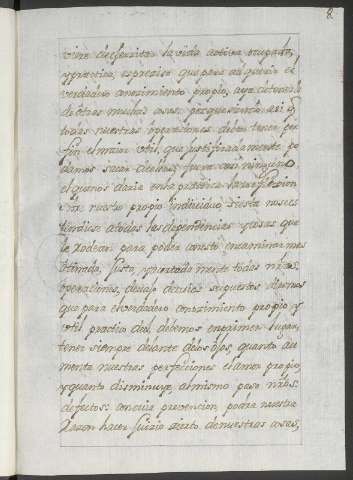 8
vivir deessotra la vida activa ocupada,
y practica, es preciso que para adquirir el
verdadero conocimiento propio, aya de tenerle
de otras muchas cosas; porque siendo assi q.
todas nuestras operaciones deben tener por
fin el maior vtil, que justificadamente po
damos sacar de ellas, fuera casi ninguno
el que nos daria en la practica la reflexion
sobre nuestro propio individuo, si esta no se es
tendiese a todas las dependencias, y cosas que
le rodean para poder con esto encaminar mas
atinada, justa, y acertadamente todas nr̃as.
operaciones, debajo de cuios supuestos, digo
que para el verdadero conocimiento propio, y
vtil practico del, debemos en primer lugar
tener siempre delante de los ojos, quanto au
menta nuestras perfecciones el amor propio,
y quanto disminuye, al mismo paso nr̃os.
defectos: con cuia prevencion, podra nuestra
Razon hacer juizio recto de nuestras cosas,